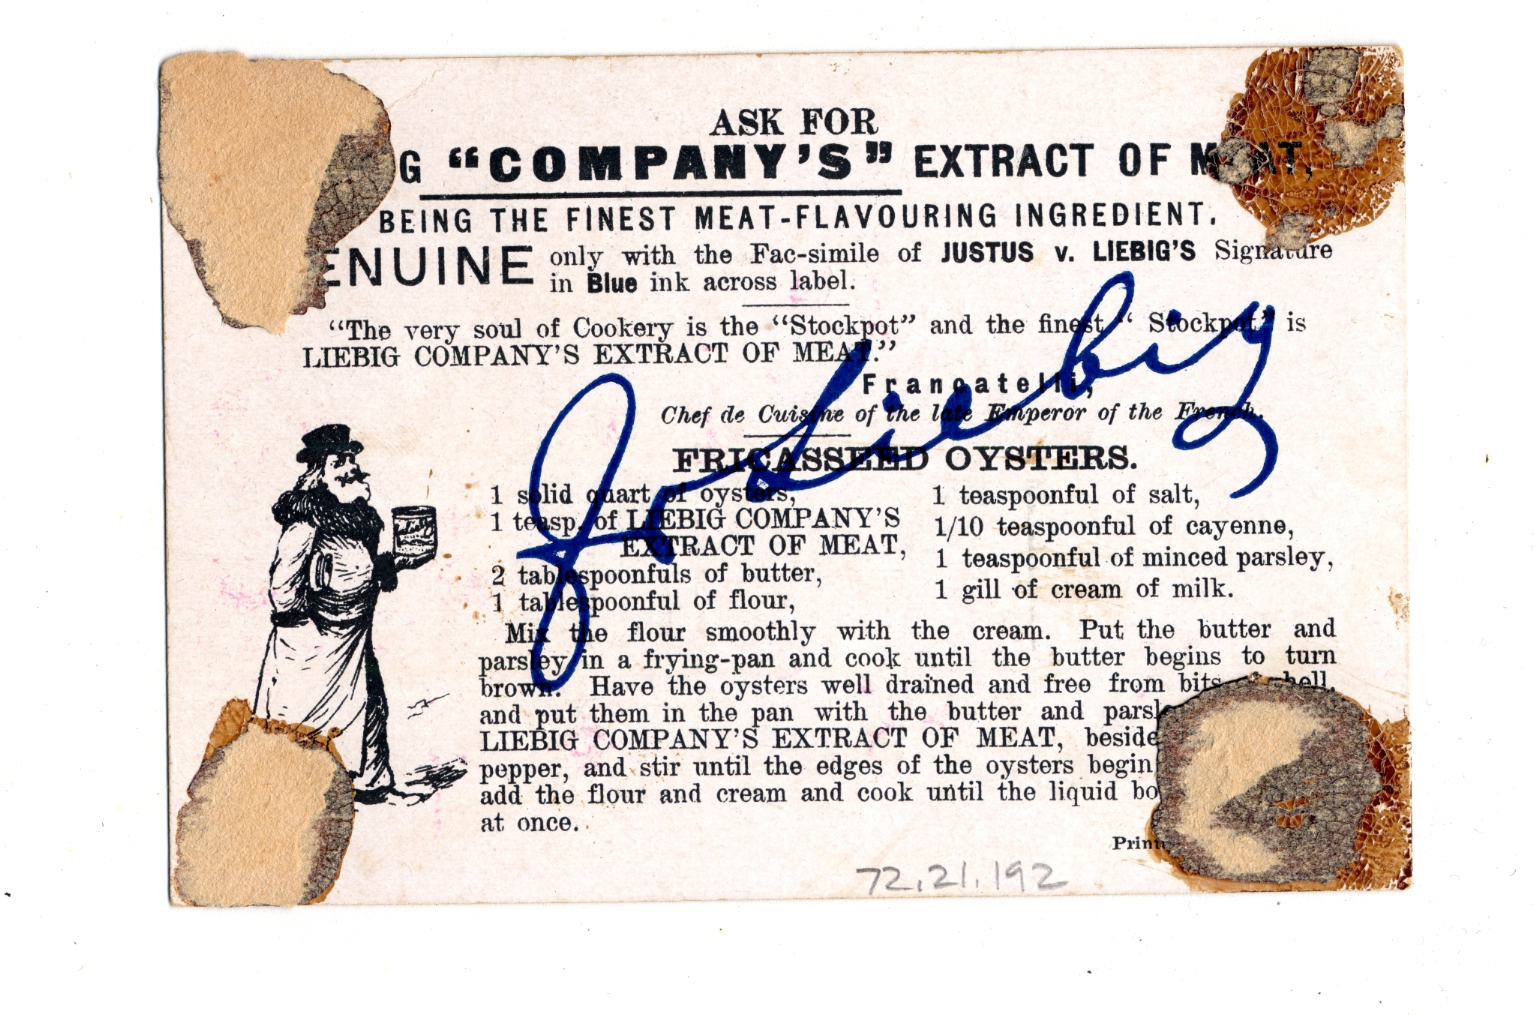 ASK FOR
G “COMPANY’S” EXTRACT OF MEAT,
BEING THE FINEST MEAT-FLAVOURING INGREDIENT.
ENUINE only with the Fac-simile of JUSTUS v. LIEBIG’S Signature
in Blue ink across label.
“The very soul of Cookery is the “Stockpot” and the finest “ Stockpot” is
LIEBIG COMPANY’S EXTRACT OF MEAT.”
Francatelli,
Chef de Cuisine of the late Emperor of the French.
FRICASSEED OYSTERS.
1 solid quart of oysters,
1 teasp. of LIEBIG COMPANY’S
EXTRACT OF MEAT,
2 tablespoonfuls of butter,
1 tablespoonful of flour,
1 teaspoonful of salt,
1/10 teaspoonful of cayenne,
1 teaspoonful of minced parsley,
1 gill of cream of milk.
Mix the flour smoothly with the cream. Put the butter and
parsley in a frying-pan and cook until the butter begins to turn
brown. Have the oysters well drained and free from bits of shell,
and put them in the pan with the butter and parsl
LIEBIG COMPANY’S EXTRACT OF MEAT, beside
pepper, and stir until the edges of the oysters begin
add the flour and cream and cook until the liquid bo
at once.
Print
J v Liebig
72.21.192